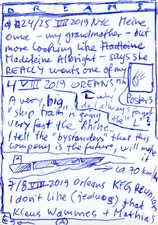 DREAMS
24/25 VII 2019 NYC Meine
Oma - my grandmother - but
more looking like
Madeleine Albright - says she
REALLY wants one of my
Posters
4 VIII 2019 ORLEANS
A very, big, I always forget
ship bath is going the
very fast the Rhine.
I tell the "bystanders" that this
company is the future, will make
it
ca 70 km/h
7/8 VIII 2019 Orleans KFG
I don't like (jealous) that
Klaus Wammes + Mathias